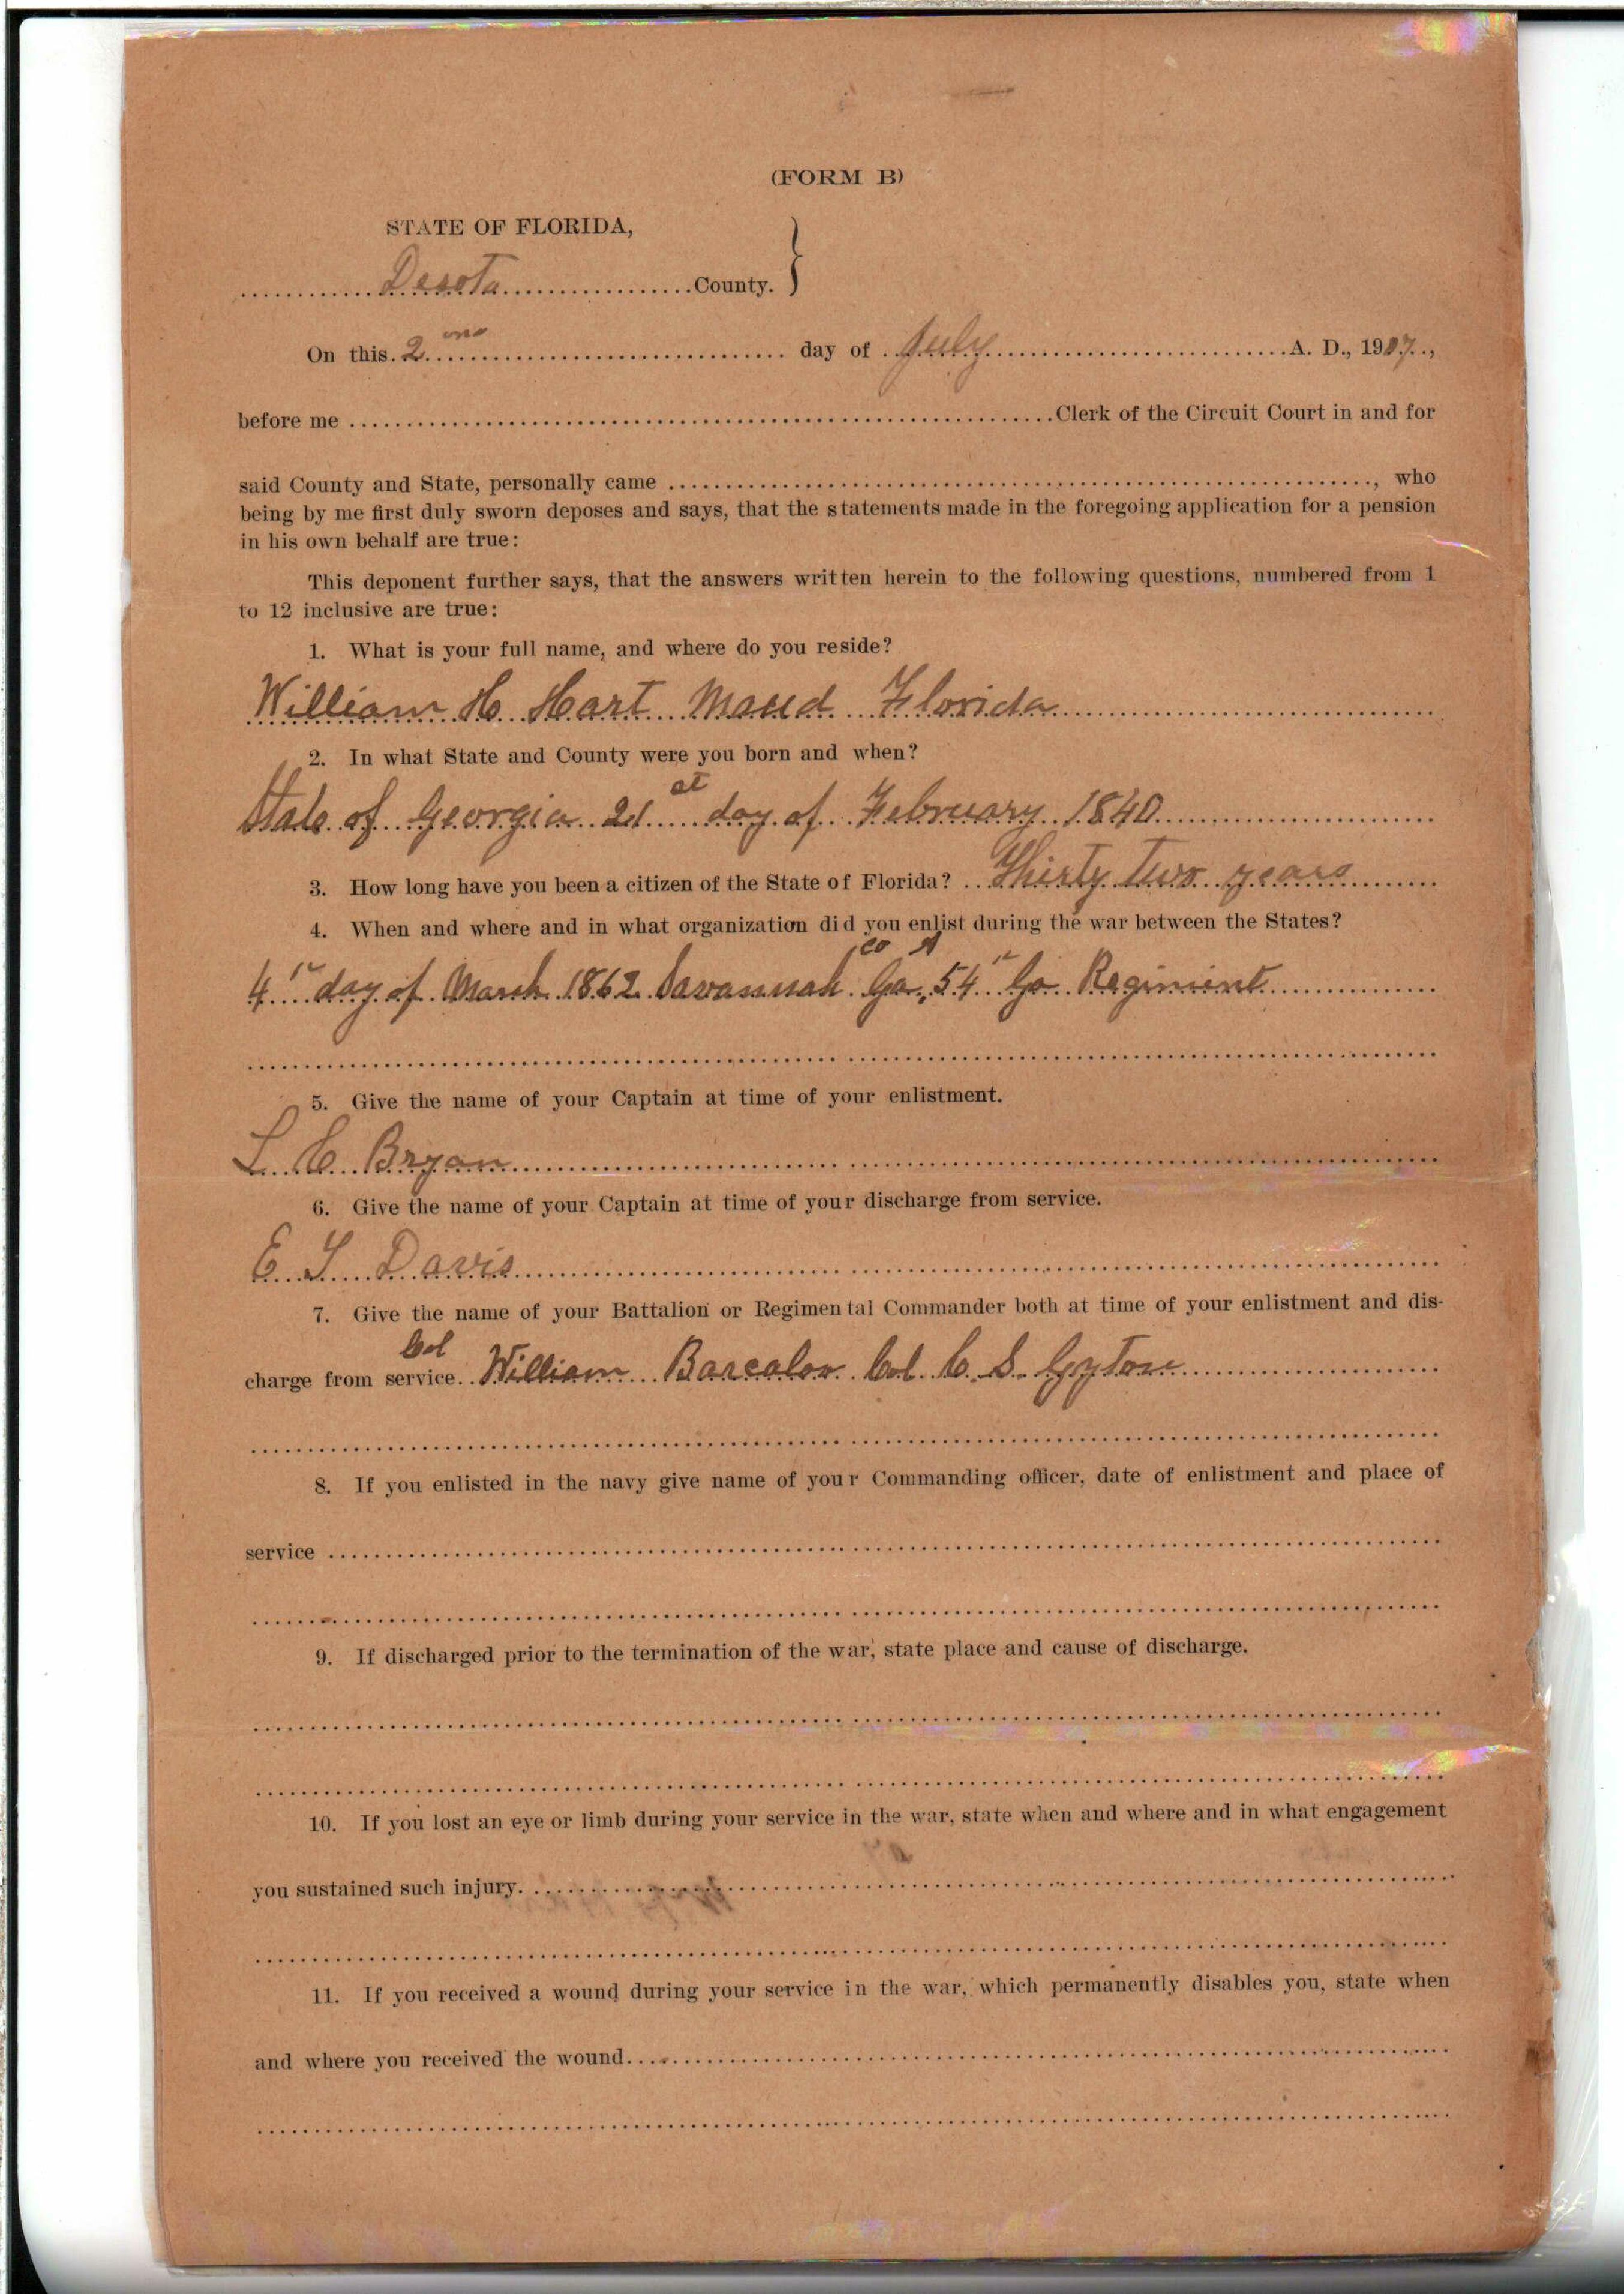 (FORM B)
STATE OF FLORIDA,
Desota County. }
On this 2nd day of July A. D., 1907,
before me Clerk of the Circuit Court in and for
said County and State, personally came , who
being by me first duly sworn deposes and says, that the statements made in the foregoing application for a pension
in his own behalf are true:
This deponent further says, that the answers written herein to the following questions, numbered from 1
to 12 inclusive are true:
1. What is your full name, and where do you reside?
William H. Hart Maud Florida
2. In what State and County were you born and when?
State of Georgia 21st day of February 1840
3. How long have you been a citizen of the State of Florida? Thirty two years
4. When and where and in what organization did you enlist during the war between the States?
Co A
4th day of March 1862 Savannah Ga, 54th Ga Regiment
5. Give the name of your Captain at time of your enlistment.
Bryan
6. Give the name of your Captain at time of your discharge from service.
E. Davis
7. Give the name of your Battalion or Regimental Commander both at time of your enlistment and dis-
Col
charge from service. William Barcalow Col C. S. Gyton
8. If you enlisted in the navy give name of your Commanding officer, date of enlistment and place of
service
9. If discharged prior to the termination of the war, state place and cause of discharge.
10. If you lost an eye or limb during your service in the war, state when and where and in what engagement
you sustained such injury.
11. If you received a wound during your service in the war, which permanently disables you, state when
and where you received the wound.